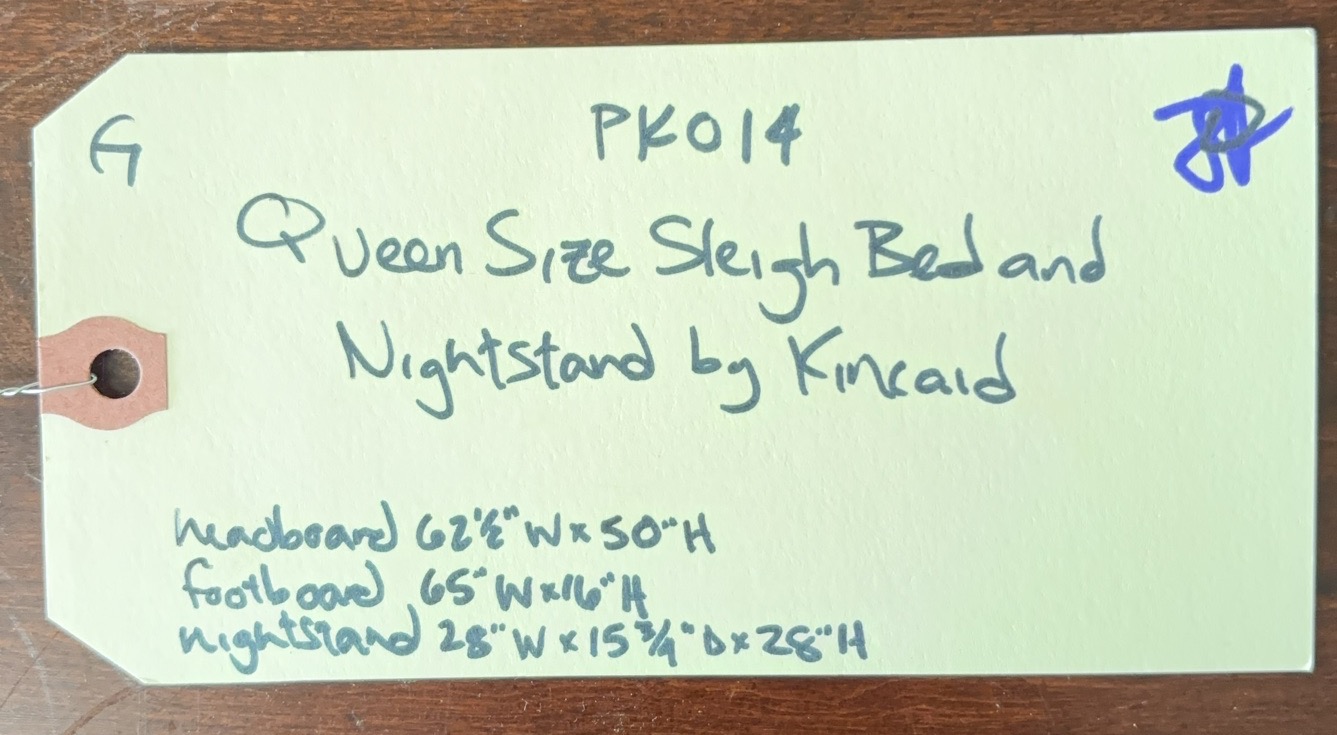 G
PK014
Queen Size Sleigh Bed and
Nightstand by Kincaid
headboard 62½" W x 50" H
footboard 65" W x 16" H
nightstand 28" W x 15 3/4" D x 28" H